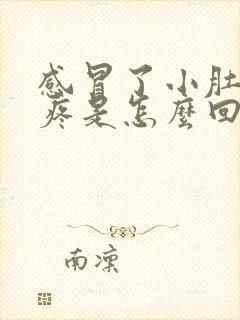 感冒了小肚
疼是怎麼回
南凜